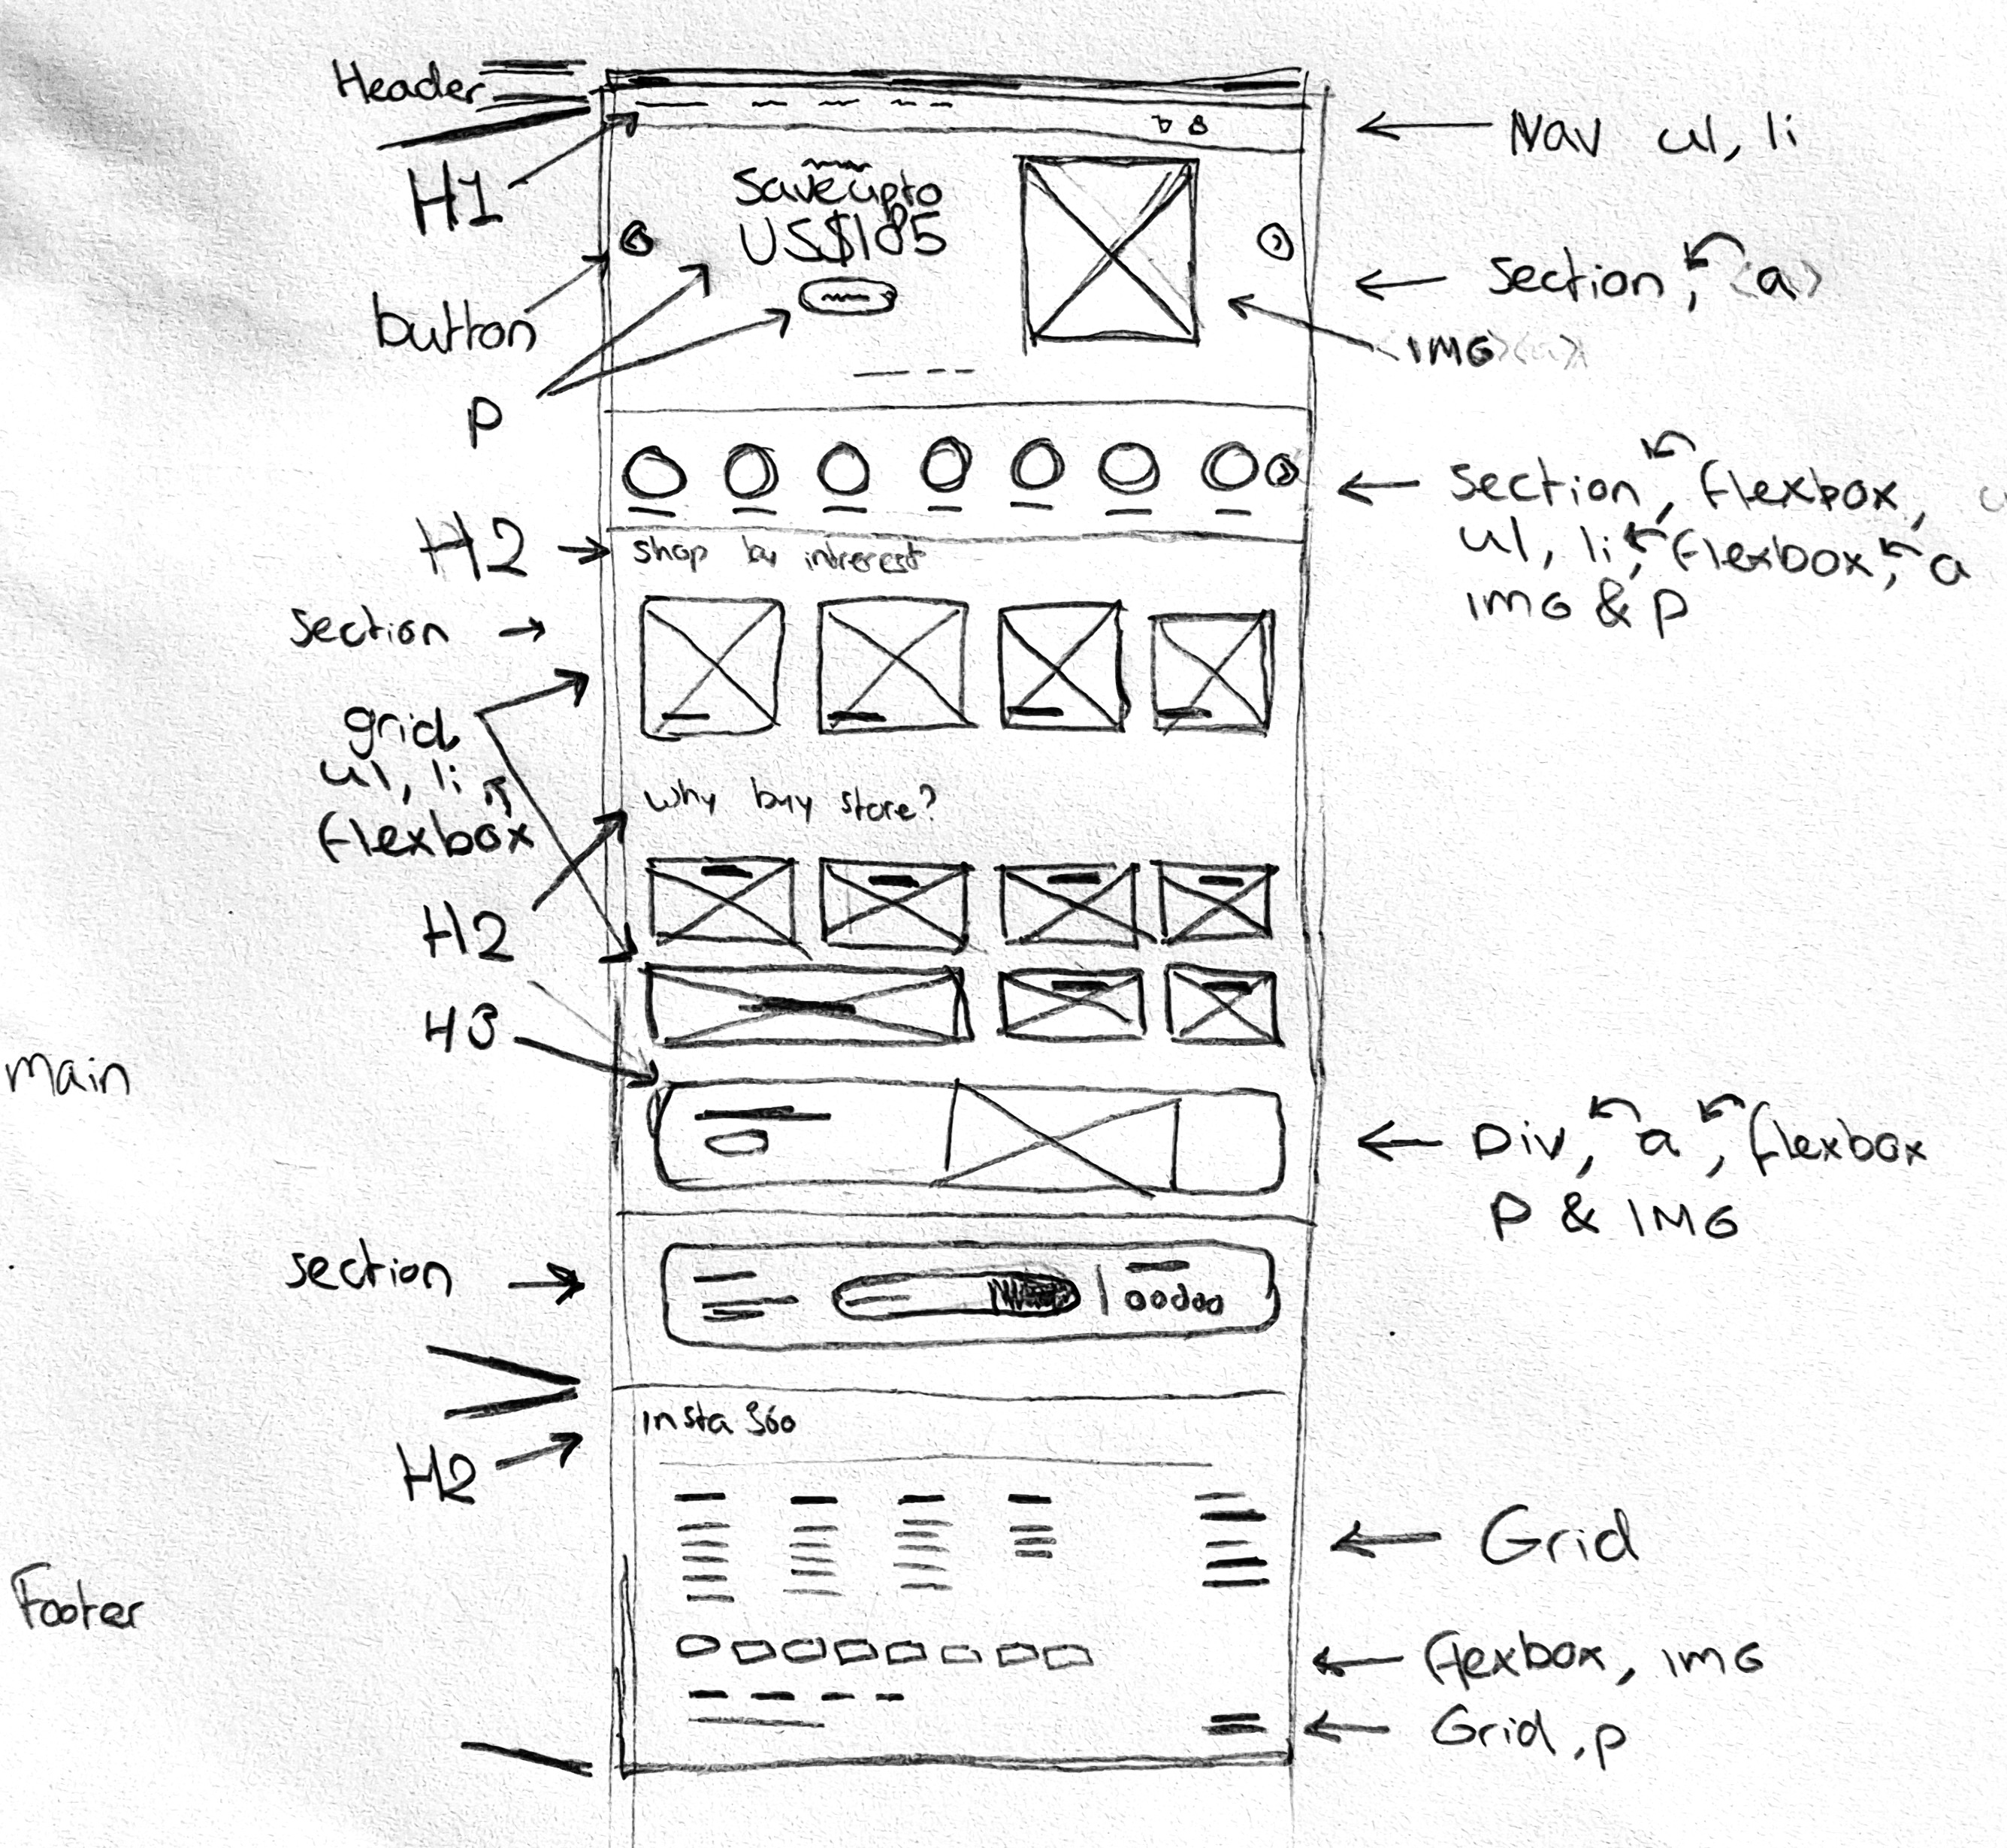 Header
Nav ul, li
H1
Save upto
US$185
section, <a>
button
<IMG><a>
P
section, flexbox,
ul, li, flexbox, a
IMG & P
H2
shop by intrerest
section
grid
ul, li
flexbox
Why buy store?
H2
H3
Main
Div, a, flexbox
P & IMG
section
Insta 360
H2
Grid
Footer
flexbox, IMG
Grid, P